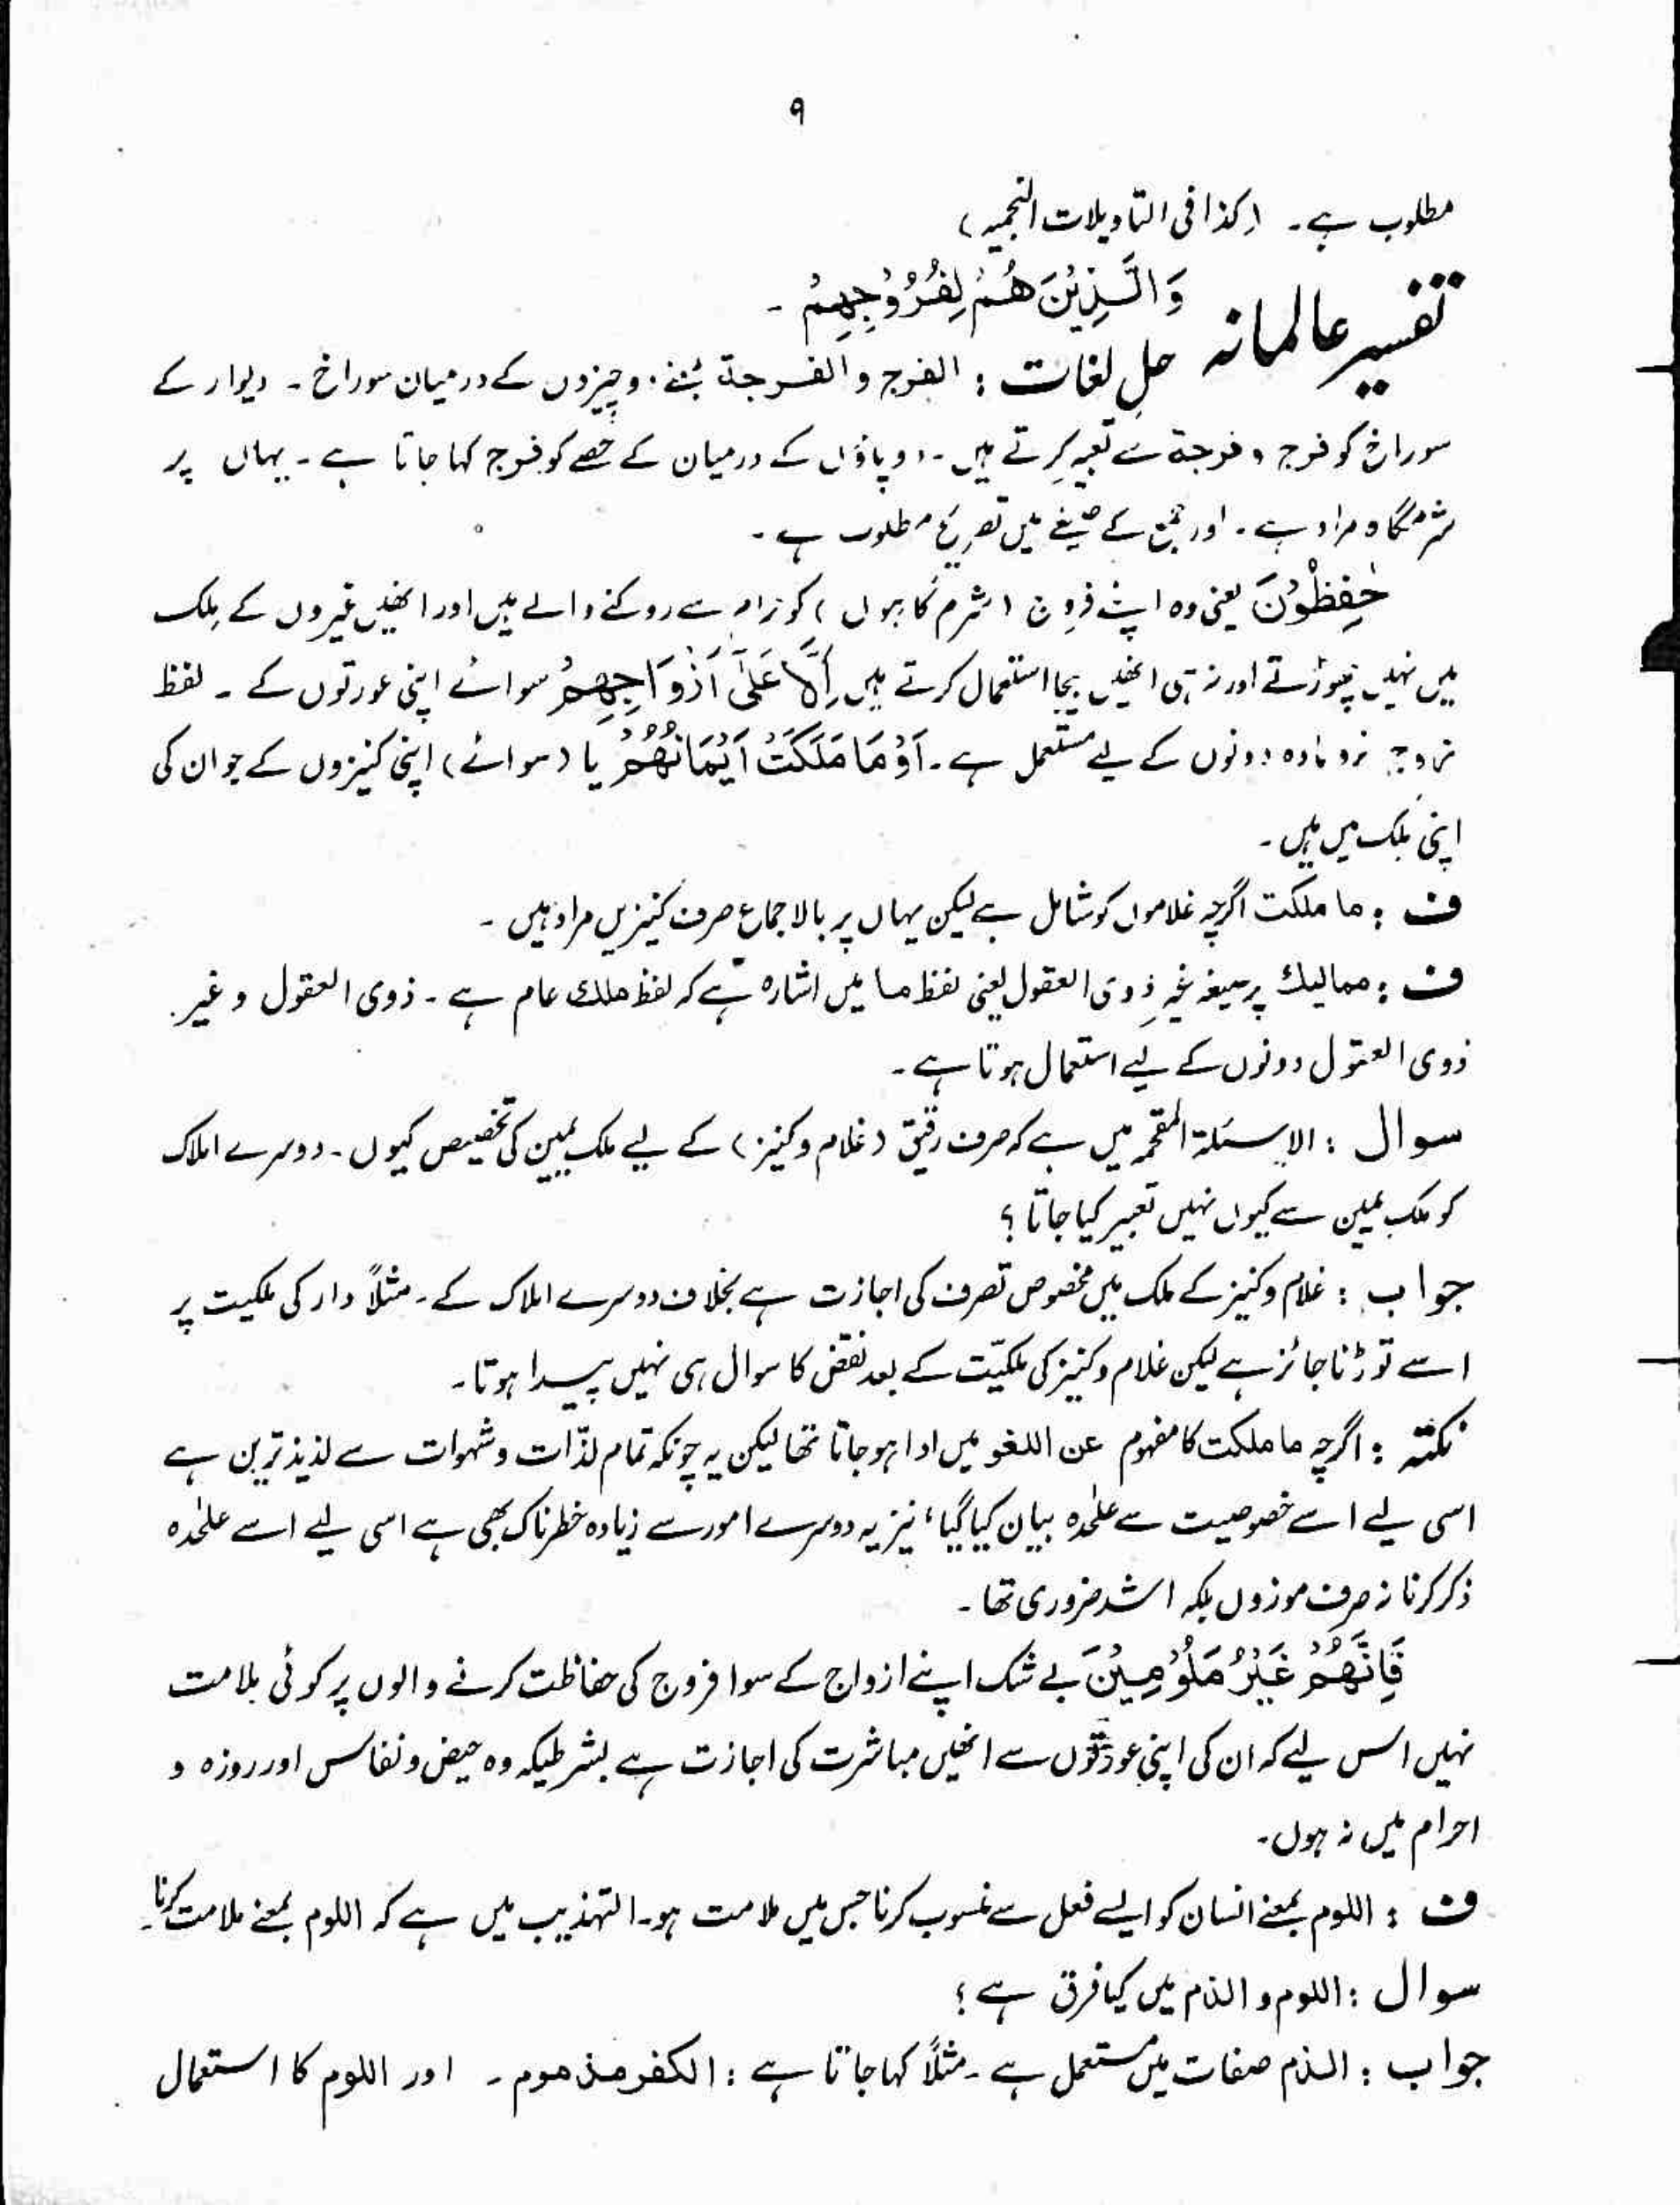 ۹
مطلوب ہے۔ (کذا فی التاویلات النجمیہ)
تفسیر عالمانہ وَالَّذِیْنَ ھُمْ لِفُرُوْجِھِمْ ۔
حلِ لغات : الفرج والفرجۃ بمعنے دو چیزوں کے درمیان سوراخ ۔ دیوار کے
سوراخ کو فرج و فرجۃ سے تعبیر کرتے ہیں ۔ دو پاؤں کے درمیان کے حصے کو فرج کہا جاتا ہے ۔ یہاں پر
شرمگاہ مراد ہے ۔ اور جمع کے صیغے میں تصریح مطلوب ہے ۔
حٰفِظُوْنَ یعنی وہ اپنے فروج (شرم گاہوں) کو حرام سے روکنے والے ہیں اور انھیں غیروں کے مِلک
میں نہیں چھوڑتے اور نہ ہی انھیں بیجا استعمال کرتے ہیں اِلَّا عَلٰٓی اَزْوَاجِھِمْ سوائے اپنی عورتوں کے ۔ لفظ
زوج نر و مادہ دونوں کے لیے مستعمل ہے ۔ اَوْ مَا مَلَکَتْ اَیْمَانُھُمْ یا (سوائے) اپنی کنیزوں کے جو ان کی
اپنی مِلک میں ہیں ۔
ف : ما ملکت اگرچہ غلاموں کو شامل ہے لیکن یہاں پر بالاجماع صرف کنیزیں مراد ہیں ۔
ف : ممالیک پر صیغہ غیر ذوی العقول یعنی لفظ ما میں اشارہ ہے کہ لفظ ملک عام ہے ۔ ذوی العقول و غیر
ذوی العقول دونوں کے لیے استعمال ہوتا ہے ۔
سوال : الاسئلۃ المقحمہ میں ہے کہ صرف رقیق (غلام و کنیز) کے لیے ملک یمین کی تخصیص کیوں ۔ دوسرے املاک
کو ملکِ یمین سے کیوں نہیں تعبیر کیا جاتا ؟
جواب : غلام و کنیز کے ملک میں مخصوص تصرف کی اجازت ہے بخلاف دوسرے املاک کے ۔ مثلاً دار کی ملکیت پر
اسے توڑنا جائز ہے لیکن غلام و کنیز کی ملکیّت کے بعد نقض کا سوال ہی نہیں پیدا ہوتا ۔
نکتہ : اگرچہ ما ملکت کا مفہوم عن اللغو میں ادا ہو جاتا تھا لیکن یہ چونکہ تمام لذّات و شہوات سے لذیذ ترین ہے
اسی لیے اسے خصوصیت سے علٰحدہ بیان کیا گیا ، نیز یہ دوسرے امور سے زیادہ خطرناک بھی ہے اسی لیے اسے علٰحدہ
ذکر کرنا نہ صرف موزوں بلکہ اشد ضروری تھا ۔
فَاِنَّھُمْ غَیْرُ مَلُوْمِیْنَ بے شک اپنے ازواج کے سوا فروج کی حفاظت کرنے والوں پر کوئی ملامت
نہیں اس لیے کہ ان کی اپنی عورتوں سے انھیں مباشرت کی اجازت ہے بشرطیکہ وہ حیض و نفاس اور روزہ و
احرام میں نہ ہوں ۔
ف : اللوم بمعنے انسان کو ایسے فعل سے منسوب کرنا جس میں ملامت ہو ۔ التہذیب میں ہے کہ اللوم بمعنے ملامت کرنا ۔
سوال : اللوم و الذم میں کیا فرق ہے ؟
جواب : الذم صفات میں مستعمل ہے ۔ مثلاً کہا جاتا ہے : الکفر مذموم ۔ اور اللوم کا استعمال